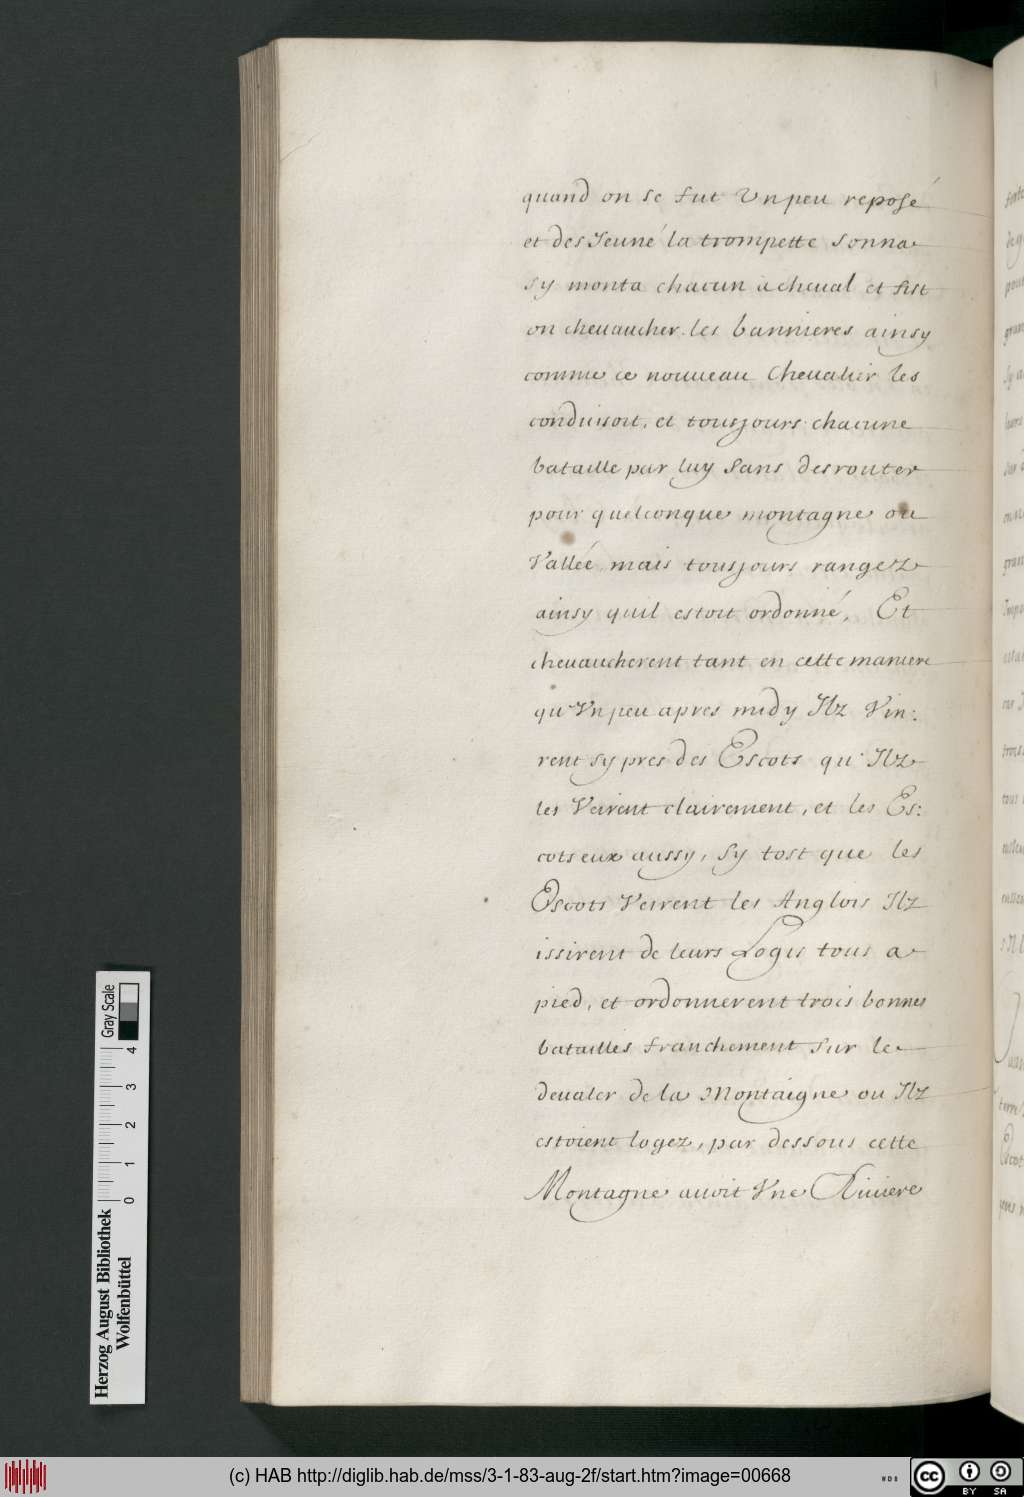 quand on se fut Vn peu reposé
et des Jeuné la trompette sonna
sy monta chacun à cheual et fist
on cheuaucher les bannieres ainsy
comme ce nouueau Cheualier les
conduisoit, et tousjours chacune
bataille par luy sans desrouter
pour quelconque montagne ou
Vallée mais tousjours rangez
ainsy quil estoit ordonné, Et
cheuaucherent tant en cette maniere
qu'Vn peu apres midy Ilz Vin:
rent sy pres des Escots qu'Ilz
les Veirent clairement, et les Es:
cots eux aussy, sy tost que les
Escots Veirent les Anglois Ilz
issirent de leurs Logis tous a
pied, et ordonnerent trois bonnes
batailles franchement sur le
deualer de la Montaigne ou Ilz
estoient logez, par dessous cette
Montagne auoit Vne Riuiere
Gray Scale
0 1 2 3 4
Herzog August Bibliothek
Wolfenbüttel
(c) HAB http://diglib.hab.de/mss/3-1-83-aug-2f/start.htm?image=00668
WDB
cc
BY SA